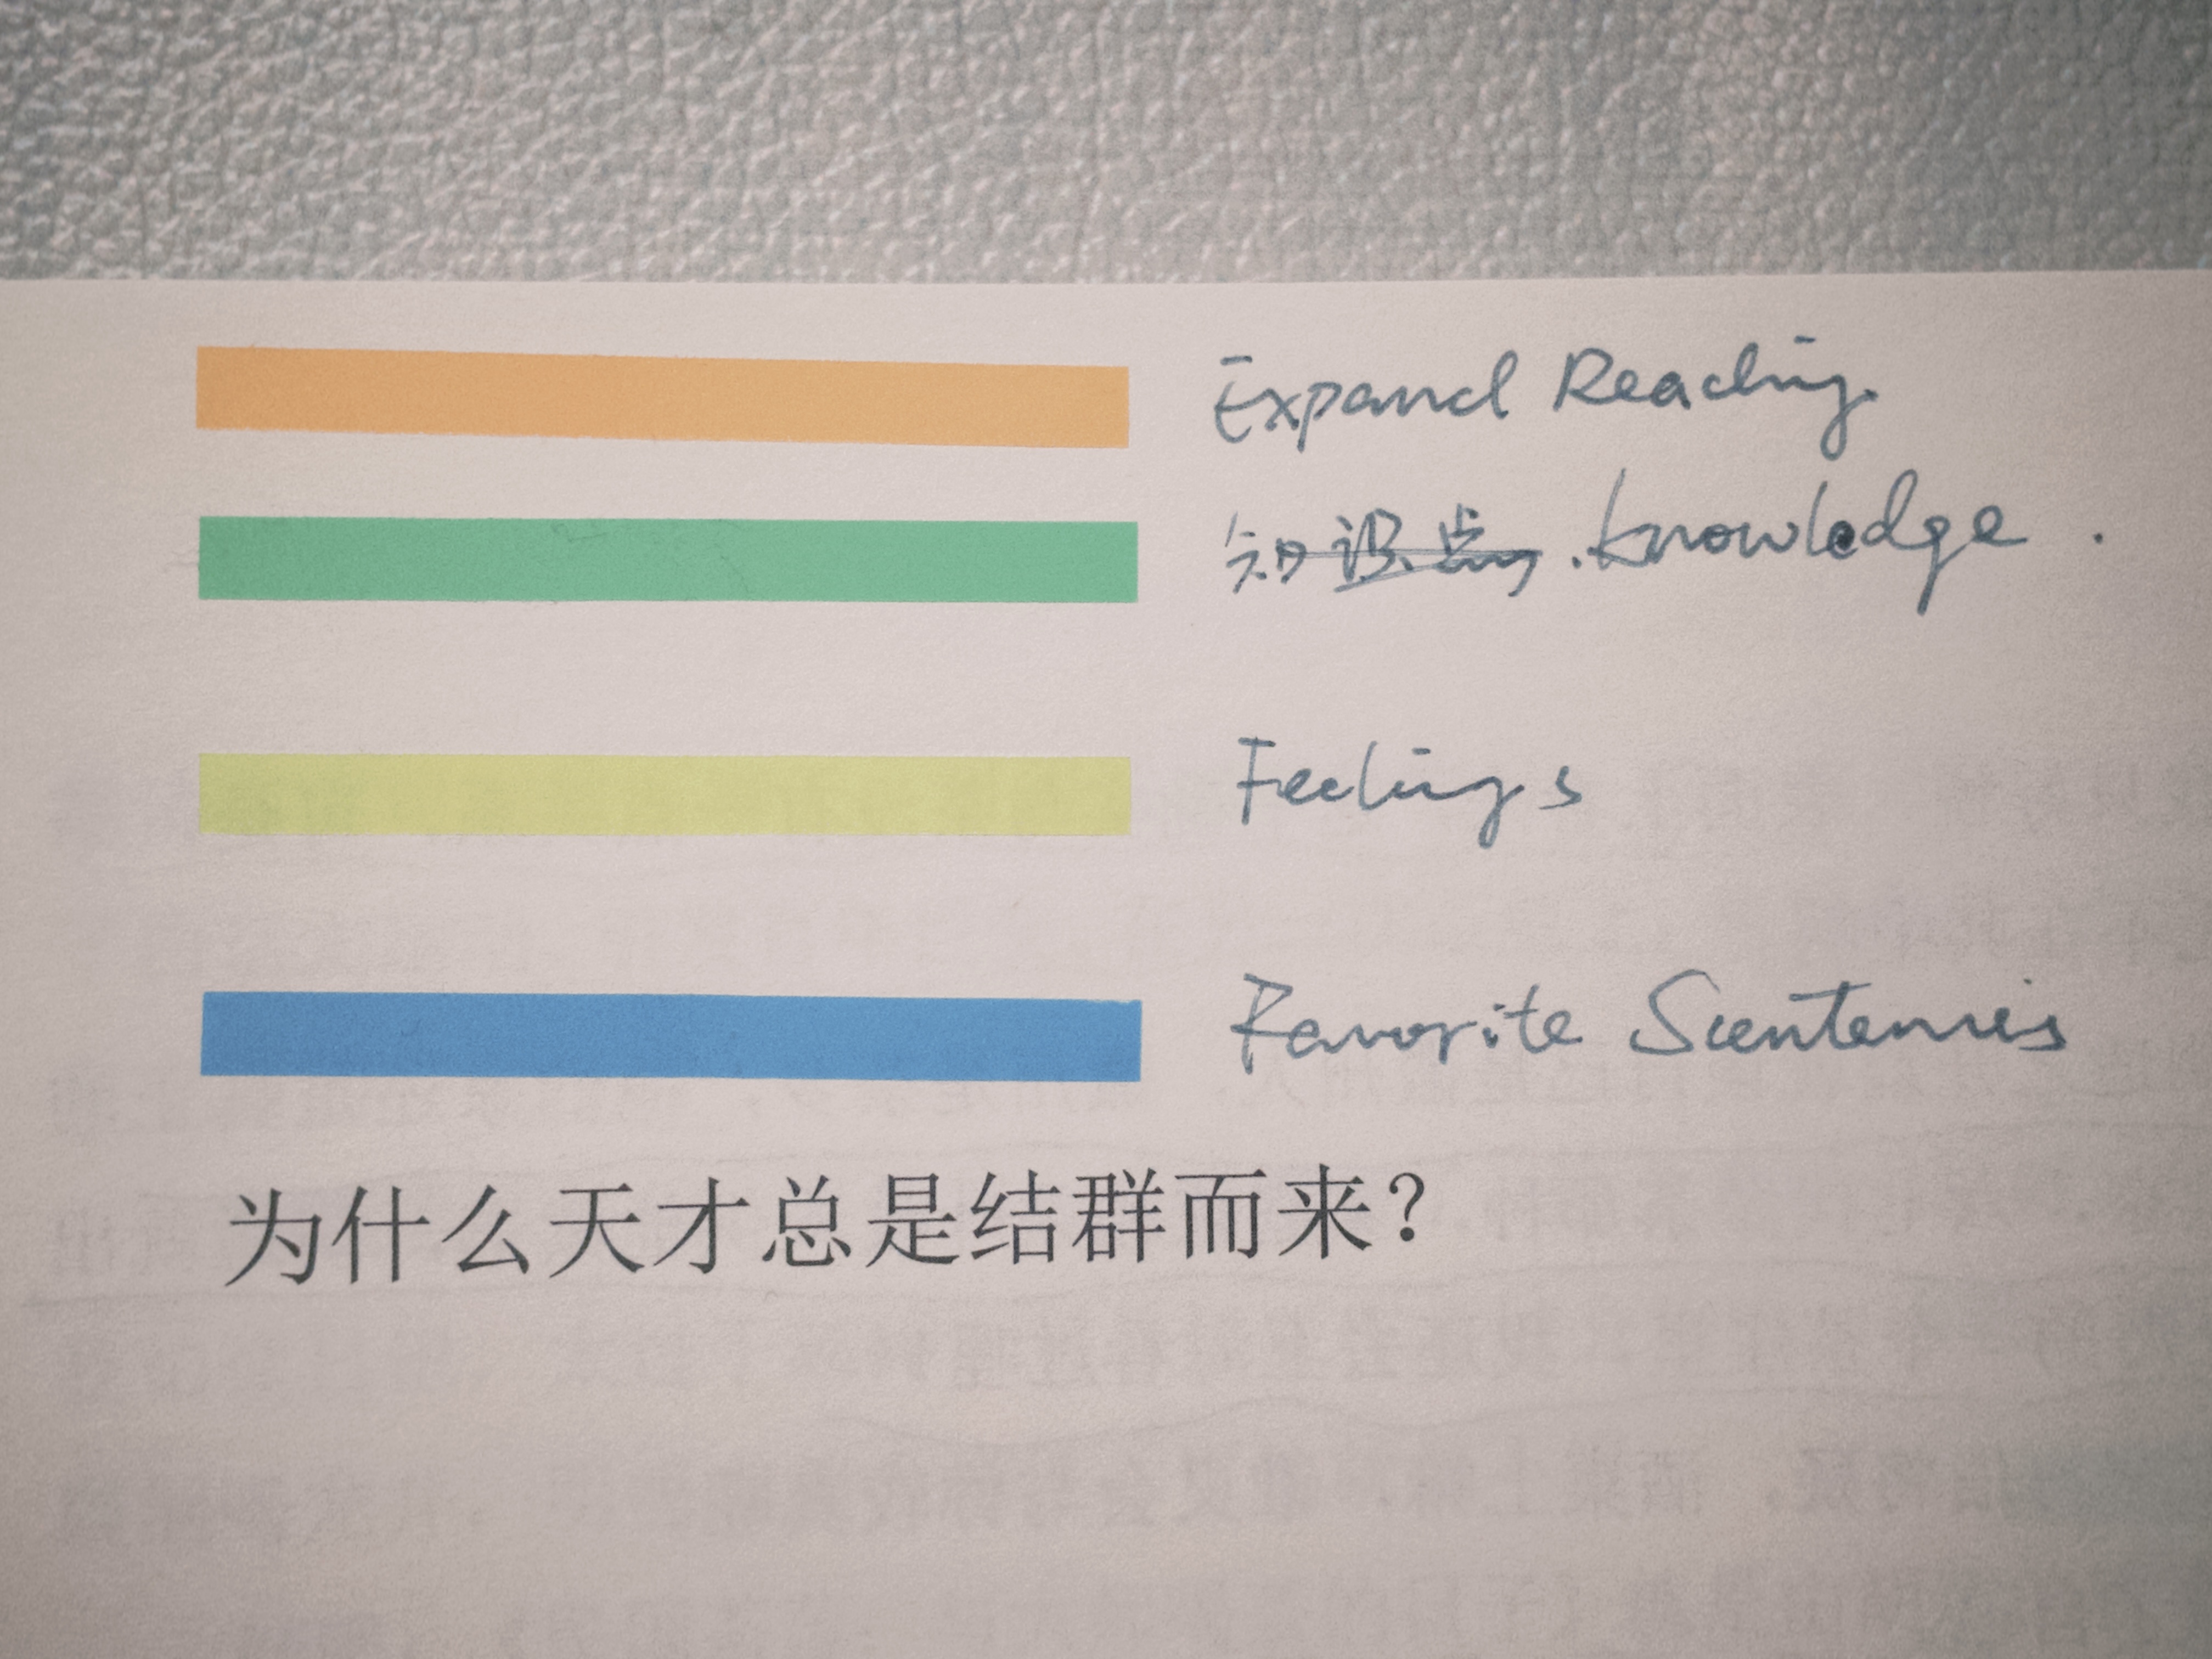 Expand Reading
知识点 . knowledge .
Feelings
Favorite Scentences
为什么天才总是结群而来？